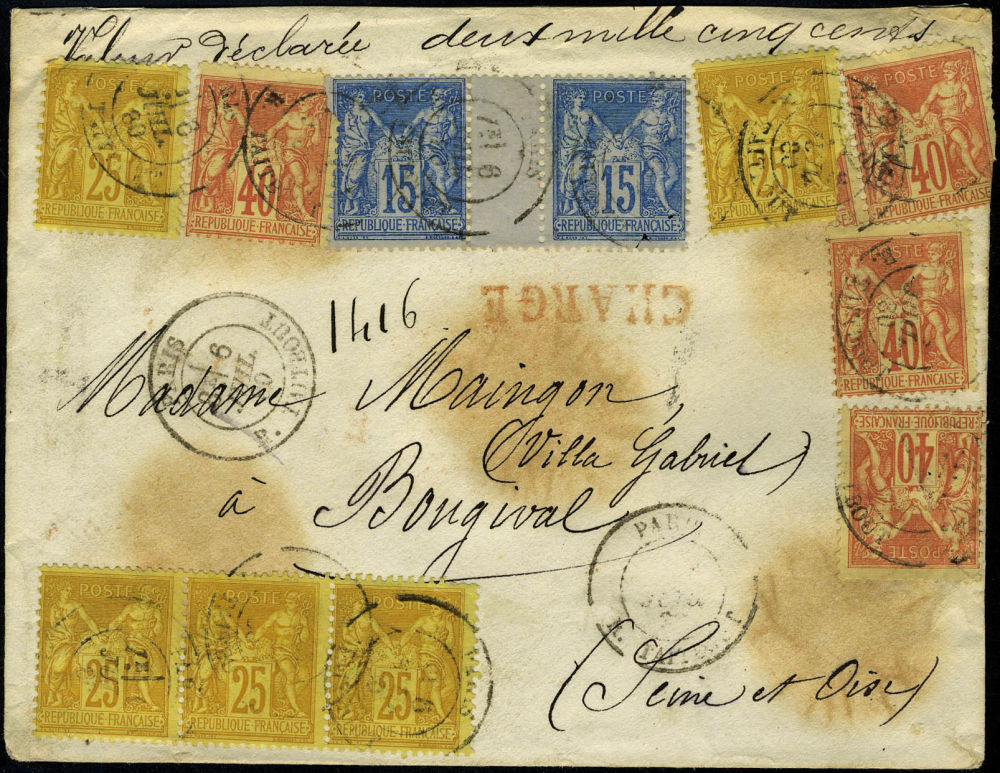 Valeur déclarée deux mille cinq cents
POSTE
25
REPUBLIQUE FRANÇAISE
40
REPUBLIQUE FRANÇAISE
POSTE
15
REPUBLIQUE FRANÇAISE
POSTE
15
REPUBLIQUE FRANÇAISE
POSTE
REPUBLIQUE FRANÇAISE
POSTE
40
REPUBLIQUE FRANÇAISE
POSTE
40
REPUBLIQUE FRANÇAISE
POSTE
40
REPUBLIQUE FRANÇAISE
1416
CHARGE
PARIS
Madame Maingon,
(Villa Gabriel)
à Bougival
(Seine et Oise)
POSTE
25
REPUBLIQUE FRANÇAISE
POSTE
25
REPUBLIQUE FRANÇAISE
POSTE
25
REPUBLIQUE FRANÇAISE